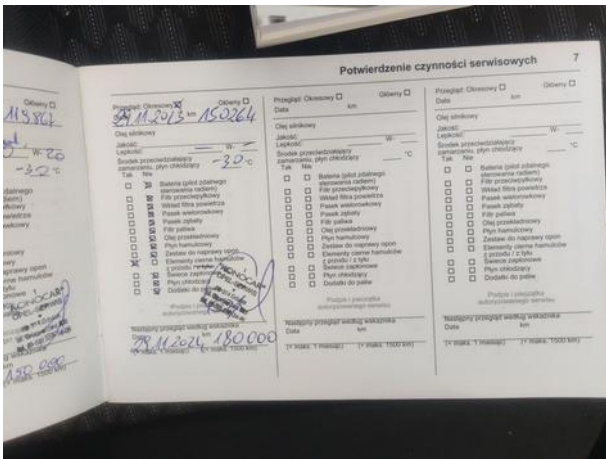 Potwierdzenie czynności serwisowych 7
Główny ☐
W- 20
°C
Przegląd: Okresowy ☒ Główny ☐
29.11.2023 km 150264
Olej silnikowy
Jakość:
Lepkość: W-
Środek przeciwdziałający
zamarzaniu, płyn chłodzący -30 °C
Tak Nie
Bateria (pilot zdalnego
sterowania radiem)
Filtr przeciwpyłkowy
Wkład filtra powietrza
Pasek wielorowkowy
Pasek zębaty
Filtr paliwa
Olej przekładniowy
Płyn hamulcowy
Zestaw do naprawy opon
Elementy cierne hamulców
z przodu / z tyłu
Świece zapłonowe
Płyn chłodzący
Dodatki do
"KONOCAR"
Następny przegląd według wskaźnika
Data km
29.11.2024 180 000
(+ maks. 1 miesiąc) (+ maks. 1500 km)
Przegląd: Okresowy ☐ Główny ☐
Data km
Olej silnikowy
Jakość:
Lepkość: W-
Środek przeciwdziałający
zamarzaniu, płyn chłodzący °C
Tak Nie
Bateria (pilot zdalnego
sterowania radiem)
Filtr przeciwpyłkowy
Wkład filtra powietrza
Pasek wielorowkowy
Pasek zębaty
Filtr paliwa
Olej przekładniowy
Płyn hamulcowy
Zestaw do naprawy opon
Elementy cierne hamulców
z przodu / z tyłu
Świece zapłonowe
Płyn chłodzący
Dodatki do paliw
Podpis i pieczątka
autoryzowanego serwisu
Następny przegląd według wskaźnika
Data km
(+ maks. 1 miesiąc) (+ maks. 1500 km)
Przegląd: Okresowy ☐ Główny ☐
Data km
Olej silnikowy
Jakość:
Lepkość: W-
Środek przeciwdziałający
zamarzaniu, płyn chłodzący °C
Tak Nie
Bateria (pilot zdalnego
sterowania radiem)
Filtr przeciwpyłkowy
Wkład filtra powietrza
Pasek wielorowkowy
Pasek zębaty
Filtr paliwa
Olej przekładniowy
Płyn hamulcowy
Zestaw do naprawy opon
Elementy cierne hamulców
z przodu / z tyłu
Świece zapłonowe
Płyn chłodzący
Dodatki do paliw
Podpis i pieczątka
autoryzowanego serwisu
Następny przegląd według wskaźnika
Data km
(+ maks. 1 miesiąc) (+ maks. 1500 km)